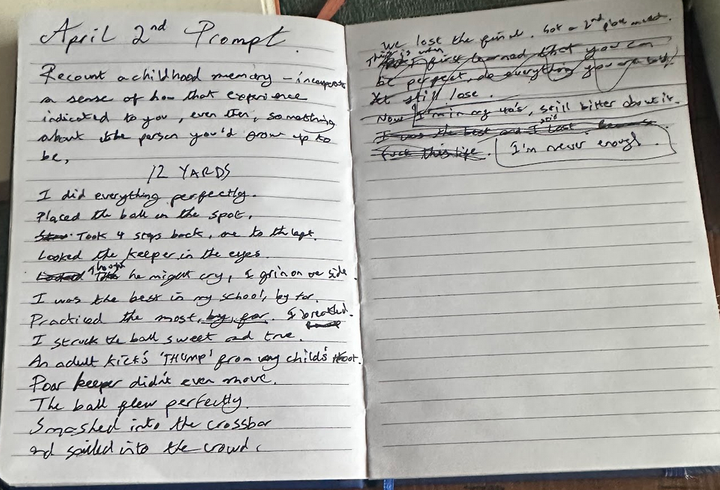 April 2nd Prompt.
Recount a childhood memory – incorporate
a sense of how that experience
indicated to you, even then, something
about the person you'd grow up to
be,
12 YARDS
I did everything perfectly.
Placed the ball on the spot,
Took 4 steps back, one to the left.
Looked the keeper in the eyes.
Thought he might cry, I grin on one side.
I was the best in my school, by far.
Practiced the most, by, far. I breathed.
I struck the ball sweet and true.
An adult kick's 'THUMP' from my child's foot.
Poor keeper didn't even move.
The ball flew perfectly.
Smashed into the crossbar
and sailed into the crowd.
We lose the final. Got a 2nd place medal.
This is when
I first learned that you can
be perfect, do everything you
still lose.
Now I'm in my 40's, still bitter about it.
I was the best and I still lost. because
Fuck this life. I'm never enough.